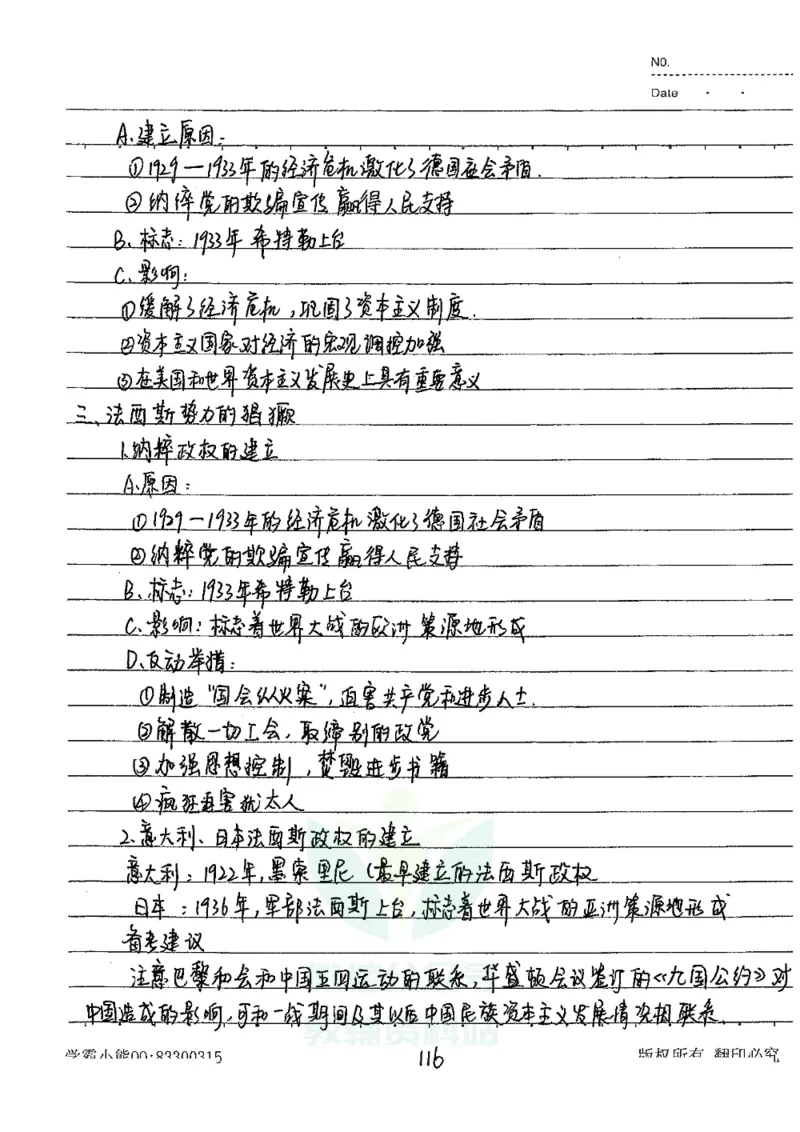 NO.
Date
A.建立原因：
①1929—1933年的经济危机激化了德国社会矛盾.
②纳粹党的欺骗宣传赢得人民支持
B.标志：1933年希特勒上台
C.影响：
①缓解了经济危机,巩固了资本主义制度.
②资本主义国家对经济的宏观调控加强
③在美国和世界资本主义发展史上具有重要意义
三、法西斯势力的猖獗
1.纳粹政权的建立
A.原因：
①1929—1933年的经济危机激化了德国社会矛盾
②纳粹党的欺骗宣传赢得人民支持
B.标志：1933年希特勒上台
C.影响：标志着世界大战的欧洲策源地形成
D.反动举措：
①制造“国会纵火案”,迫害共产党和进步人士.
②解散一切工会,取缔别的政党
③加强思想控制,焚毁进步书籍
④疯狂迫害犹太人
2.意大利、日本法西斯政权的建立
意大利：1922年,墨索里尼(最早建立的法西斯政权
日本：1936年,军部法西斯上台,标志着世界大战的亚洲策源地形成
备考建议
注意巴黎和会和中国五四运动的联系,华盛顿会议签订的《九国公约》对
中国造成的影响,可和一战期间及其以后中国民族资本主义发展情况相联系.
教辅资料站
学霸小熊QQ:83300315
116
版权所有 翻印必究